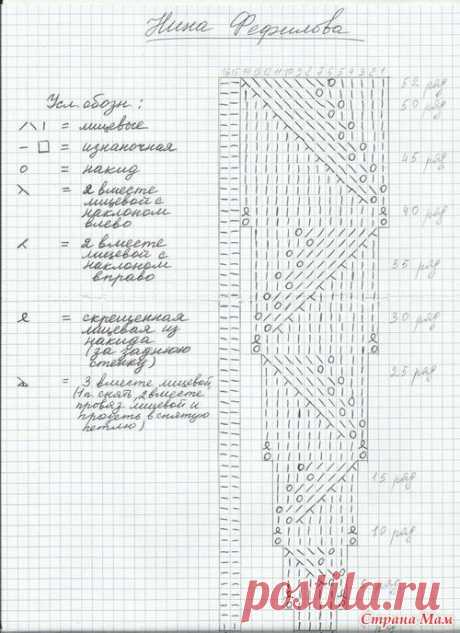 Нина Фефилова
Усл. обозн:
/ \ | = лицевые
– □ = изнаночная
о = накид
= 2 вместе
лицевой с
наклоном
влево
= 2 вместе
лицевой с
наклоном
вправо
= скрещенная
лицевая из
накида
(за заднюю
стенку)
= 3 вместе лицевой
(1 п. снят, 2 вместе
провяз. лицевой и
продеть в снятую
петлю)
52 ряд
50 ряд
45 ряд
40 ряд
35 ряд
30 ряд
25 ряд
15 ряд
10 ряд
postila.ru
Страна Мам